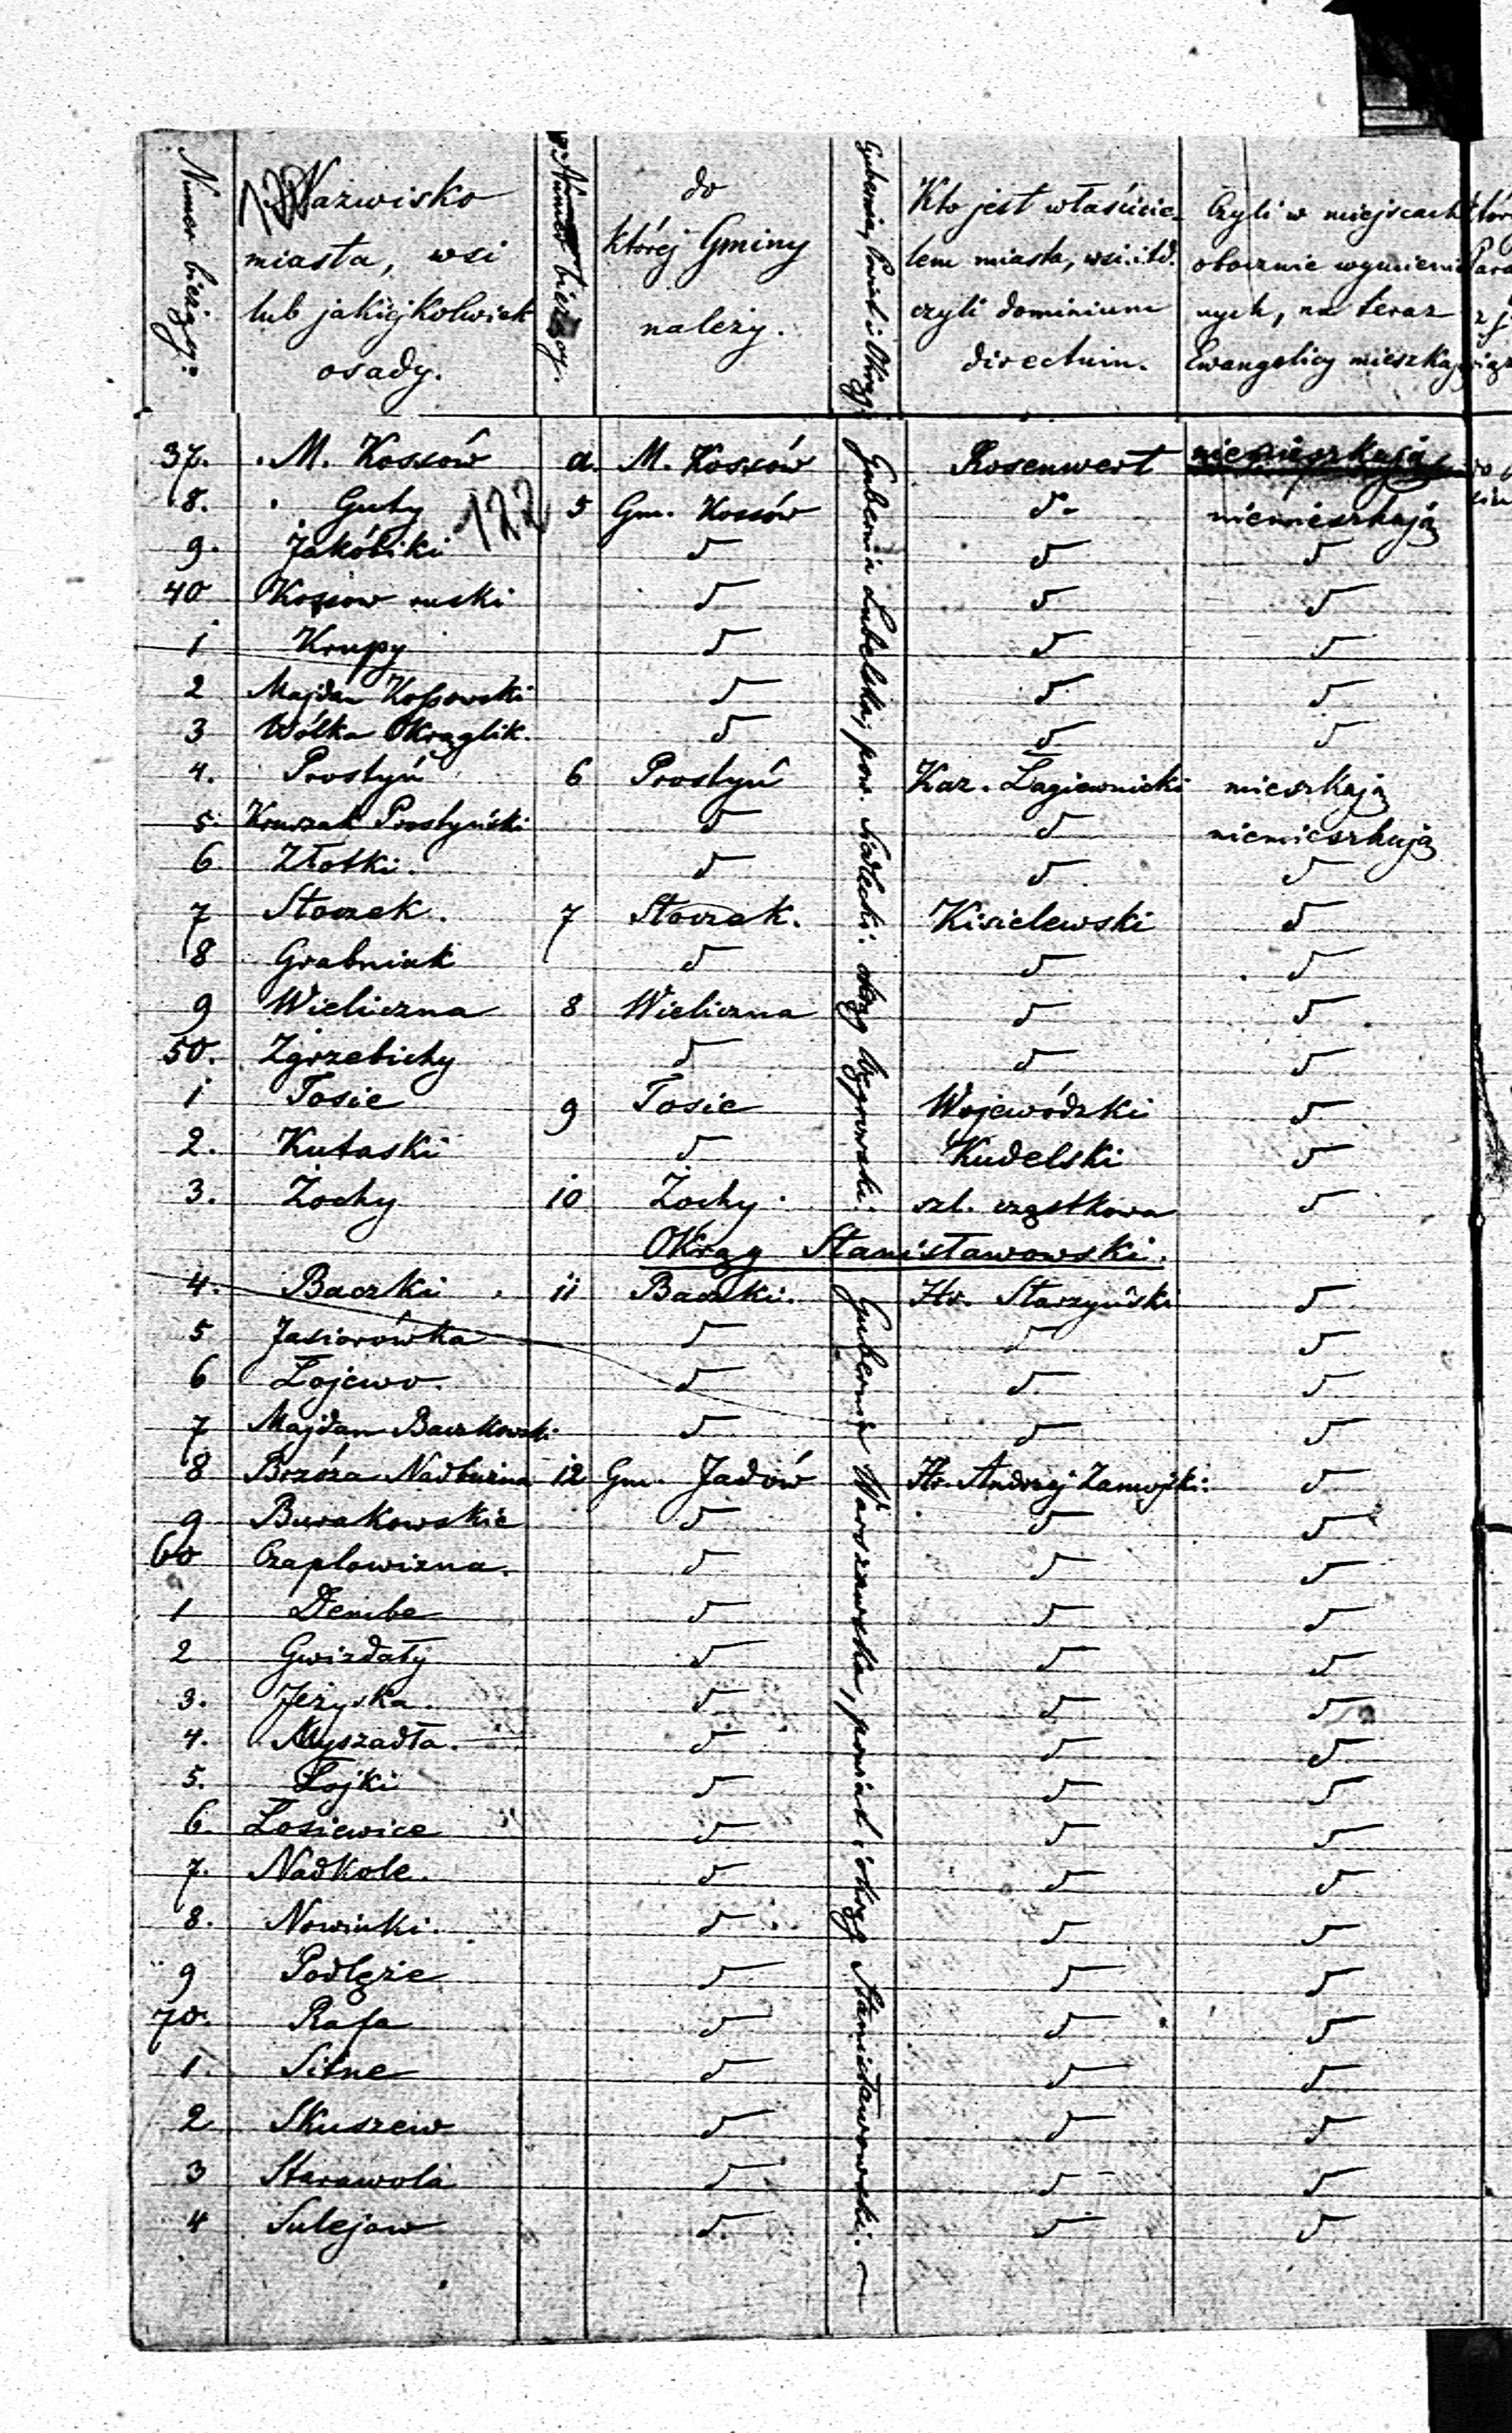 Numer bieżący.
Nazwisko
miasta, wsi
lub jakiejkolwiek
osady.
Numer bieżący.
do
której Gminy
należy.
Gubernia, Powiat i Okrąg.
Kto jest właścicie-
lem miasta, wsi i t.d.
czyli dominium
directum.
Czyli w miejscach
obocznie wymienio
nych, na teraz
Ewangelicy mieszkają
122
Gubernia Lubelska, pow. Siedlecki: okrąg Węgrowski.
37. M. Kossów a. M. Kossów Rosenwert niemieszkają
8. Guty 5 Gm. Kossów d- niemieszkają
9. Jakóbiki d d d
40 Kossow ruski d d d
1 Krupy d d d
2 Majdan Kossowski d d d
3 Wólka Okrąglik. d d d
4. Prostyń 6 Prostyń Kaz. Łagiewnicki mieszkają
5. Kruszak Prostyński d d niemieszkają
6 Złotki. d d d
7 Stoczek. 7 Stoczek. Kisielewski d
8 Grabniak d d d
9 Wieliczna 8 Wieliczna d d
50. Zgrzebichy d d d
1 Tosie 9 Tosie Wojewódzki d
2. Kutaski d Kudelski d
3. Żochy 10 Żochy szl. cząstkowa d
Okrąg Stanisławowski.
Gubernia Warszawska, powiat i okrąg Stanisławowski.
4. Baczki 11 Baczki. Hr. Starzyński d
5 Jasiorówka d d d
6 Łojewo. d d d
7 Majdan Baczkowski d d d
8 Brzóza Nadbużna 12 Gm. Jadów Hr. Andrzej Zamojski. d
9 Burakowskie d d d
60 Czaplowizna. d d d
1 Dembe d d d
2 Gwizdały d d d
3. Jeżyska. d d d
4. Myszadła. d d d
5. Łojki d d d
6. Łosiewice d d d
7. Nadkole. d d d
8. Nowinki. d d d
9 Podłęzie d d d
70. Rafa d d d
1. Sitne d d d
2 Skuszew d d d
3 Starawola d d d
4 Sulejow d d d